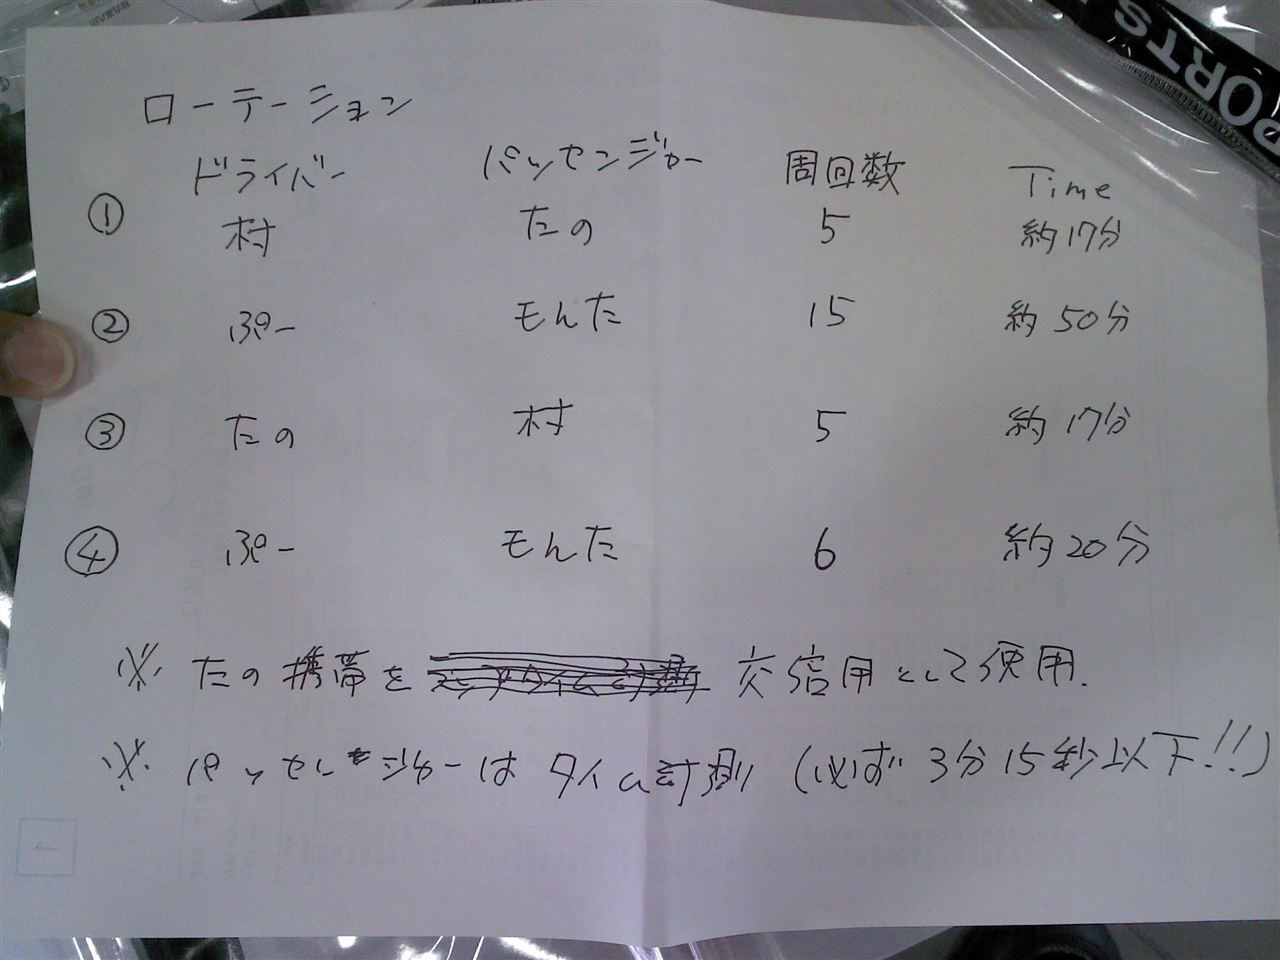 ローテーション
ドライバー パッセンジャー 周回数 Time
① 村 たの 5 約17分
② ぷー もんた 15 約50分
③ たの 村 5 約17分
④ ぷー もんた 6 約20分
※ たの携帯を 交信用として使用.
※ パッセンジャーは タイム計測 (必ず 3分15秒以下!!)
PORTS